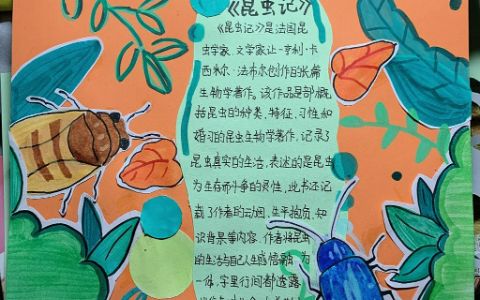 《昆虫记》
《昆虫记》是法国昆
虫学家、文学家让-亨利·卡
西米尔·法布尔创作的长篇
生物学著作。该作品是部概
括昆虫的种类、特征、习性和
婚习的昆虫生物学著作,记录了
昆虫真实的生活,表述的是昆虫
为生存而斗争的灵性,此书还记
载了作者的动因、生平抱负、知
识背景等内容。作者将昆虫
的生活与自己人生感悟融为
一体,字里行间都透露